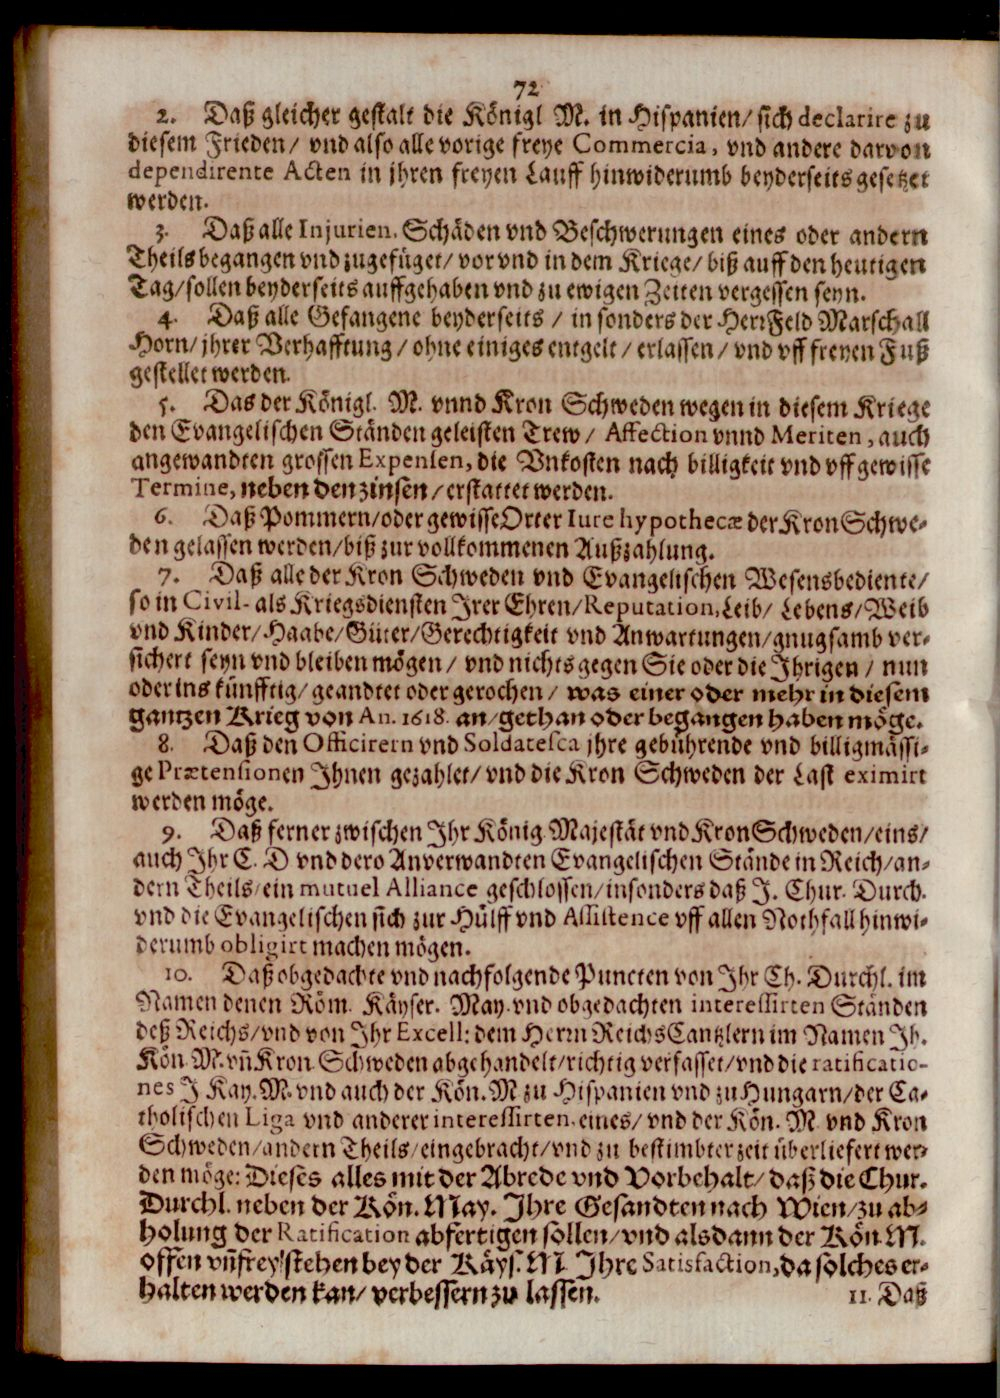 72
2. Daß gleicher gestalt die Königl M. in Hispanien/ sich declarire zu
diesem Frieden/ vnd also alle vorige freye Commercia, vnd andere darvon
dependirente Acten in jhren freyen Lauff hinwiderumb beyderseits gesetzet
werden.
3. Daß alle Injurien, Schäden vnd Beschwerungen eines oder andern
Theils begangen vnd zugefüget/ vor vnd in dem Kriege/ biß auff den heutigen
Tag/ sollen beyderseits auffgehaben vnd zu ewigen Zeiten vergessen seyn.
4. Daß alle Gefangene beyderseits / in sonders der Herr Feld Marschall
Horn/ jhrer Verhafftung / ohne einiges entgelt / erlassen / vnd vff freyen Fuß
gestellet werden.
5. Das der Königl. M. vnnd Kron Schweden wegen in diesem Kriege
den Evangelischen Ständen geleisten Trew / Affection vnnd Meriten, auch
angewandten grossen Expensen, die Vnkosten nach billigkeit vnd vff gewisse
Termine, neben den zinsen / erstattet werden.
6. Daß Pommern/oder gewisse Orter Iure hypothecæ der Kron Schwe-
den gelassen werden/biß zur vollkommenen Außzahlung.
7. Daß alle der Kron Schweden vnd Evangelischen Wesensbediente/
so in Civil- als Kriegsdiensten Jrer Ehren/Reputation, Leib/ Lebens/ Weib
vnd Kinder/ Haabe/ Güter/ Gerechtigkeit vnd Anwartungen/ gnugsamb ver-
sichert seyn vnd bleiben mögen / vnd nichts gegen Sie oder die Jhrigen / nun
oder ins künfftig/ geandtet oder gerochen / was einer oder mehr in diesem
gantzen Krieg von An. 1618. an/ gethan oder begangen haben möge.
8. Daß den Officirern vnd Soldatesca jhre gebührende vnd billigmässi-
ge Prætensionen Jhnen gezahlet/ vnd die Kron Schweden der Last eximirt
werden möge.
9. Daß ferner zwischen Jhr König. Majestät vnd Kron Schweden/eins/
auch Jhr C. D vnd dero Anverwandten Evangelischen Stände in Reich/an-
dern Theils/ ein mutuel Alliance geschlossen/insonders daß J. Chur. Durch.
vnd die Evangelischen sich zur Hülff vnd Assistence vff allen Nothfall hinwi-
derumb obligirt machen mögen.
10. Daß obgedachte vnd nachfolgende Puncten von Jhr Ch. Durchl. im
Namen denen Röm. Käyser. May. vnd obgedachten interessirten Ständen
deß Reichs/vnd von Jhr Excell: dem Herrn Reichs Cantzlern im Namen Jh.
Kön. M. vñ Kron Schweden abgehandelt/richtig verfasset/vnd die ratificatio-
nes J Kay. M. vnd auch der Kön. M zu Hispanien vnd zu Hungarn/der Ca-
tholischen Liga vnd anderer interessirten, eines/ vnd der Kön. M. vnd Kron
Schweden/andern Theils/eingebracht/vnd zu bestimbter zeit überliefert wer-
den möge: Dieses alles mit der Abrede vnd Vorbehalt/ daß die Chur.
Durchl. neben der Kön. May. Jhre Gesandten nach Wien/zu ab-
holung der Ratification abfertigen sollen/ vnd alsdann der Kön M.
offen vñ frey stehen bey der Käys. M. Jhre Satisfaction, da solches er-
halten werden kan/ verbessern zu lassen.
11. Daß